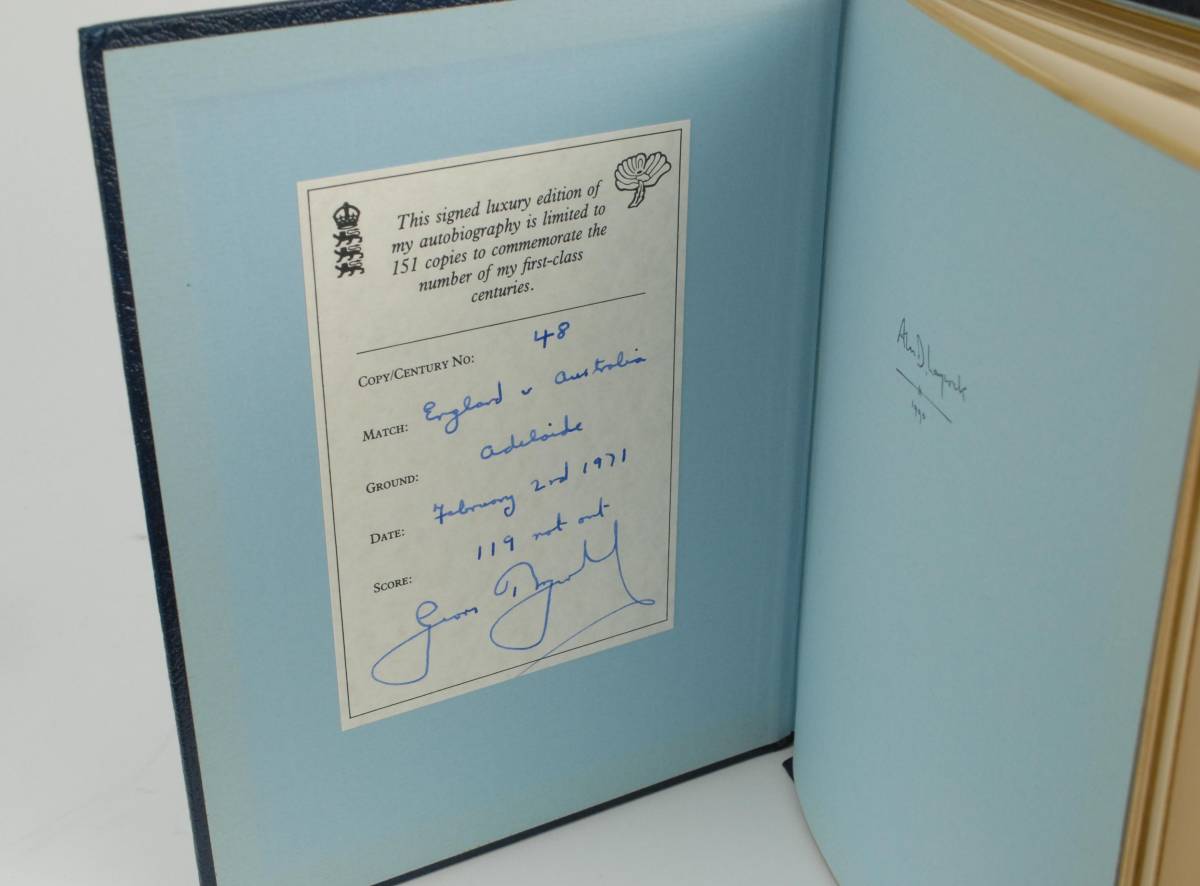 This signed luxury edition of
my autobiography is limited to
151 copies to commemorate the
number of my first-class
centuries.
COPY/CENTURY NO: 48
MATCH: England v Australia
GROUND: Adelaide
DATE: February 2nd 1971
SCORE: 119 not out
Geoff Boycott
1990